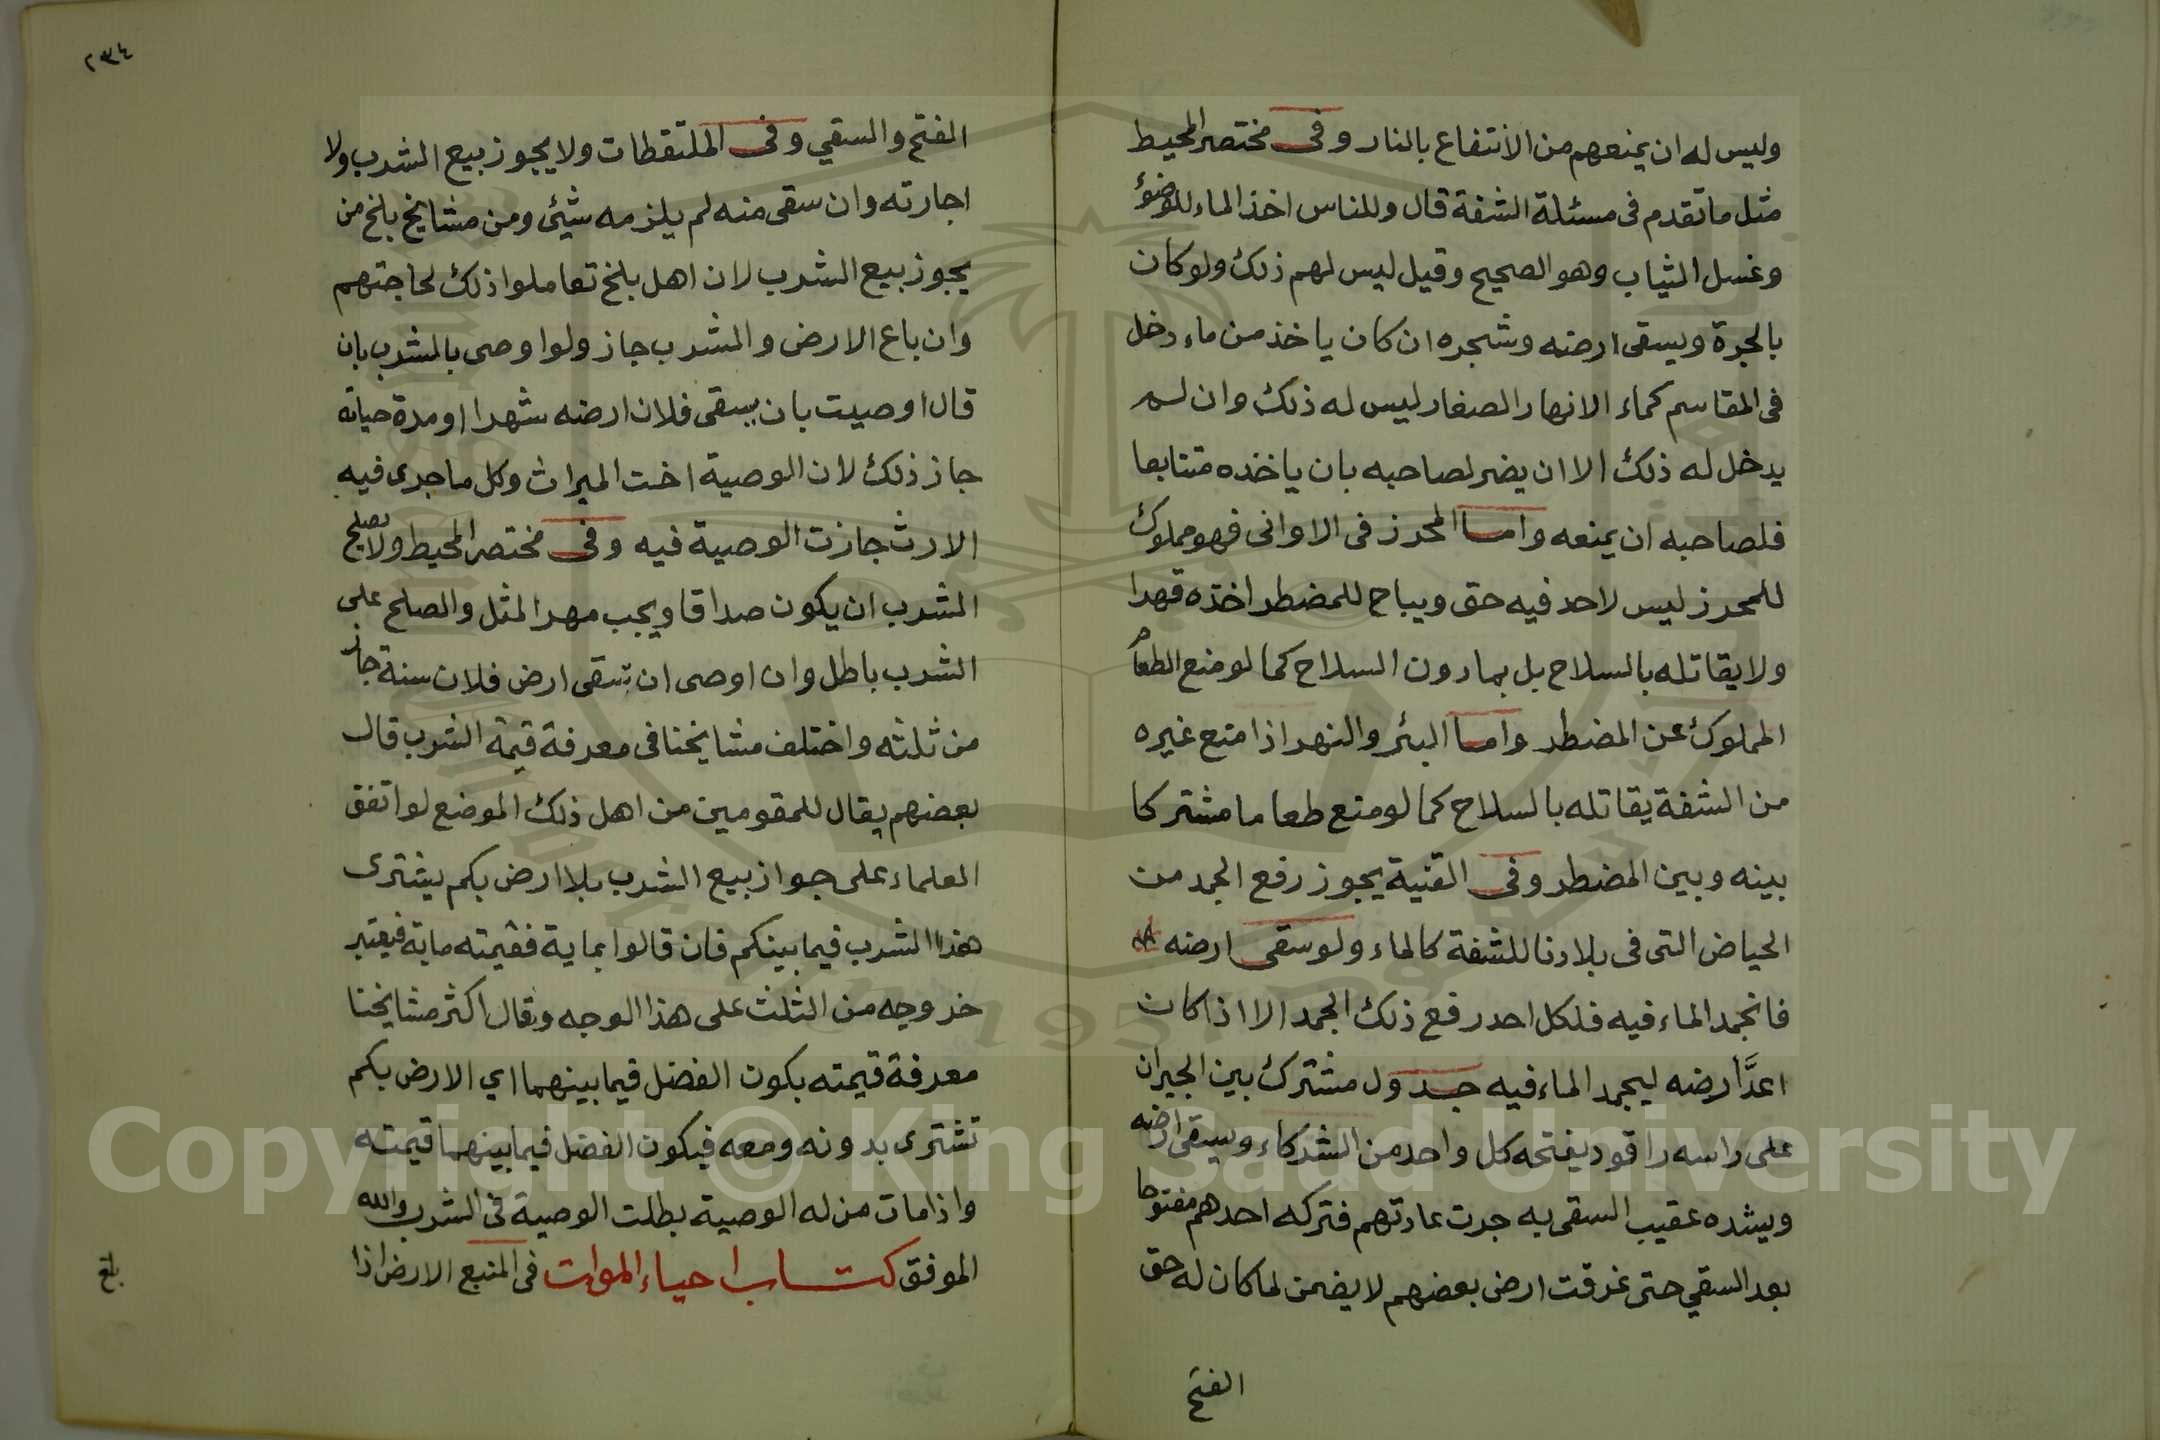 وليس له ان يمنعهم من الانتفاع بالنار وفى مختصر المحيط
مثل ما تقدم فى مسئلة الشفة قال وللناس اخذ الماء للوضوء
وغسل الثياب وهو الصحيح وقيل ليس لهم ذلك ولو كان
بالجرة ويسقى ارضه وشجره ان كان ياخذ من ماء دخل
فى المقاسم كماء الانهار الصغار ليس له ذلك وان لم
يدخل له ذلك الا ان يضر لصاحبه بان ياخذه متتابعا
فلصاحبه ان يمنعه واما المحرز فى الاوانى فهو مملوك
للمحرز ليس لاحد فيه حق ويباح للمضطر اخذه قهرا
ولا يقاتله بالسلاح بل بما دون السلاح كما لو منع الطعام
المملوك عن المضطر واما البئر والنهر اذا منع غيره
من الشفة يقاتله بالسلاح كما لو منع طعاما مشتركا
بينه وبين المضطر وفى القنية يجوز رفع الجمد من
الحياض التى فى بلادنا للشفة كالماء ولو سقى ارضه
فانجمد الماء فيه فلكل احد رفع ذلك الجمد الا اذا كان
اعدَّ ارضه ليجمد الماء فيه جدول مشترك بين الجيران
على راسه راقود يفتحه كل واحد من الشركاء ويسقى ارضه
ويشده عقيب السقى به جرت عادتهم فتركه احدهم مفتوحا
بعد السقي حتى غرقت ارض بعضهم لا يضمن لما كان له حق
الفتح
٢٣٤
الفتح والسقي وفى الملتقطات ولا يجوز بيع الشرب ولا
اجارته وان سقى منه لم يلزمه شيئ ومن مشايخ بلخ من
يجوز بيع الشرب لان اهل بلخ تعاملوا ذلك لحاجتهم
وان باع الارض والشرب جاز ولو اوصى بالشرب بان
قال اوصيت بان يسقى فلان ارضه شهرا او مدة حياته
جاز ذلك لان الوصية اخت الميراث وكل ما جرى فيه
الارث جازت الوصية فيه وفى مختصر المحيط ولا يصلح
الشرب ان يكون صداقا ويجب مهر المثل والصلح على
الشرب باطل وان اوصى ان تسقى ارض فلان سنة جاز
من ثلثه واختلف مشايخنا فى معرفة قيمة الشرب قال
بعضهم يقال للمقومين من اهل ذلك الموضع لو اتفق
العلماء على جواز بيع الشرب بلا ارض بكم يشترى
هذا الشرب فيما بينكم فان قالوا بماية فقيمته ماية فيعتبر
خروجه من الثلث على هذا الوجه وقال اكثر مشايخنا
معرفة قيمته بكون الفضل فيما بينهما اي الارض بكم
تشترى بدونه ومعه فيكون الفضل فيما بينهما قيمته
واذا مات من له الوصية بطلت الوصية فى الشرب والله
الموفق كتاب احياء الموات فى المنبع الارض اذا
بلغ
Copyright © King Saud University